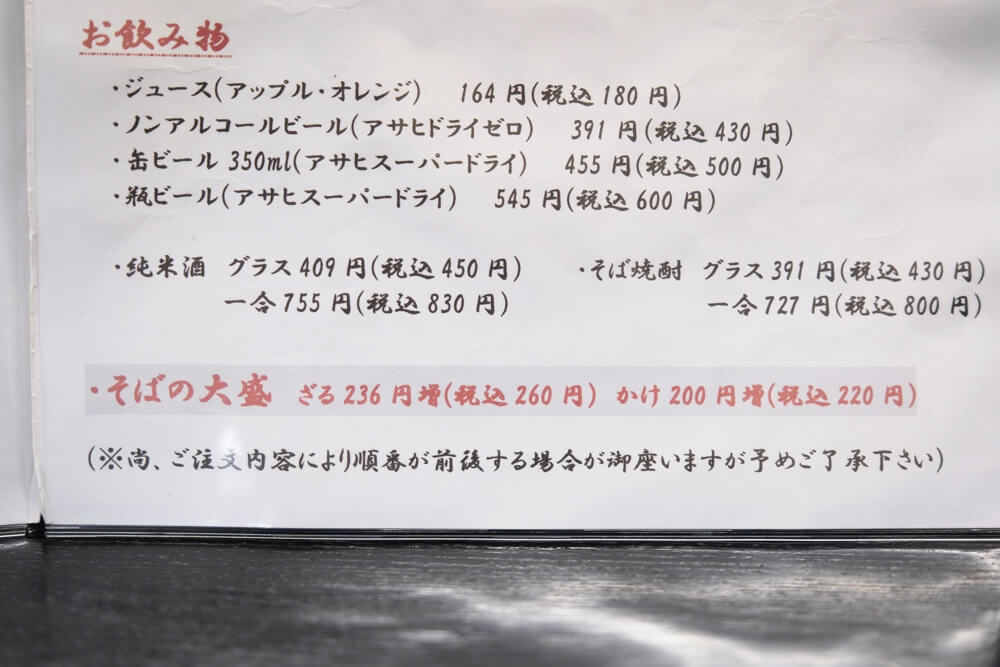 お飲み物
・ジュース(アップル・オレンジ) 164円(税込180円)
・ノンアルコールビール(アサヒドライゼロ) 391円(税込430円)
・缶ビール 350ml(アサヒスーパードライ) 455円(税込500円)
・瓶ビール(アサヒスーパードライ) 545円(税込600円)
・純米酒 グラス409円(税込450円) ・そば焼酎 グラス391円(税込430円)
一合755円(税込830円) 一合727円(税込800円)
・そばの大盛 ざる236円増(税込260円) かけ200円増(税込220円)
(※尚、ご注文内容により順番が前後する場合が御座いますが予めご了承下さい)